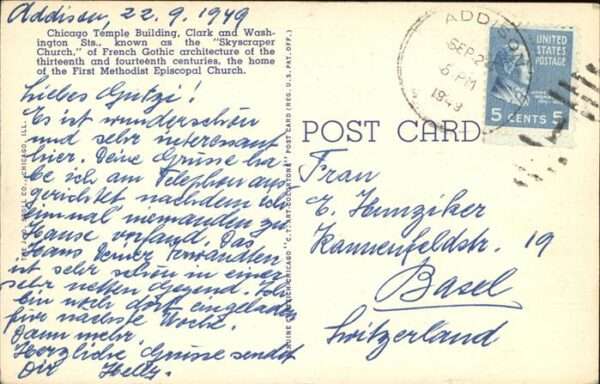 Addison, 22.9.1949
Chicago Temple Building, Clark and Wash-
ington Sts., known as the "Skyscraper
Church," of French Gothic architecture of the
thirteenth and fourteenth centuries, the home
of the First Methodist Episcopal Church.
Liebes Gutzi!
Es ist wunderschön
und sehr interessant
hier. Deine Grüsse ha-
be ich am Telephon aus-
gerichtet, nachdem ich
einmal niemanden zu
Hause vorfand. Das
Haus Deiner Verwandten
ist sehr schön in einer
sehr netten Gegend. Ich
bin noch dort eingeladen
für nächste Woche.
Dann mehr.
Herzliche Grüsse sendet
Dir Helly.
POST CARD
ADDISON
SEP 2
5 PM
1949
UNITED STATES
POSTAGE
5 CENTS 5
Frau
E. Hunziker
Kannenfeldstr. 19
Basel
Switzerland